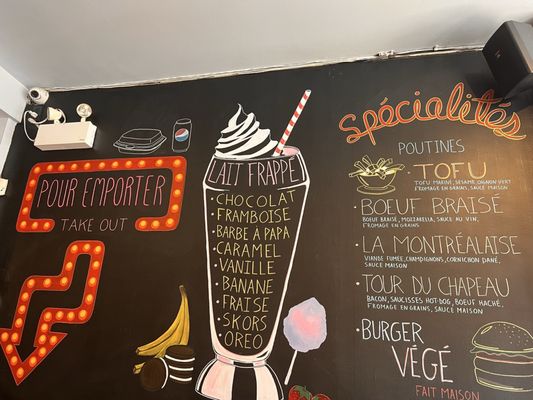 POUR EMPORTER
TAKE OUT
LAIT FRAPPÉ
• CHOCOLAT
• FRAMBOISE
• BARBE À PAPA
• CARAMEL
• VANILLE
• BANANE
• FRAISE
• SKORS
• OREO
Spécialités
POUTINES
• TOFU
TOFU MARINÉ, SÉSAME, OIGNON VERT
FROMAGE EN GRAINS, SAUCE MAISON
• BOEUF BRAISÉ
BOEUF BRAISÉ, MOZZARELLA, SAUCE AU VIN,
FROMAGE EN GRAINS
• LA MONTRÉALAISE
VIANDE FUMÉE, CHAMPIGNONS, CORNICHON DANÉ,
SAUCE MAISON
• TOUR DU CHAPEAU
BACON, SAUCISSES HOT-DOG, BOEUF HACHÉ,
FROMAGE EN GRAINS, SAUCE MAISON
• BURGER
VÉGÉ
FAIT MAISON